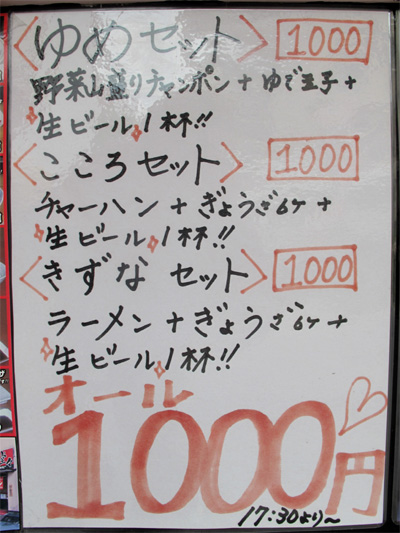 〈ゆめセット〉 1000
野菜山盛りチャンポン+ゆで玉子+
生ビール1杯!!
〈こころセット〉 1000
チャーハン+ぎょうざ6ケ+
生ビール1杯!!
〈きずなセット〉 1000
ラーメン+ぎょうざ6ケ+
生ビール1杯!!
オール
1000円
17:30より〜